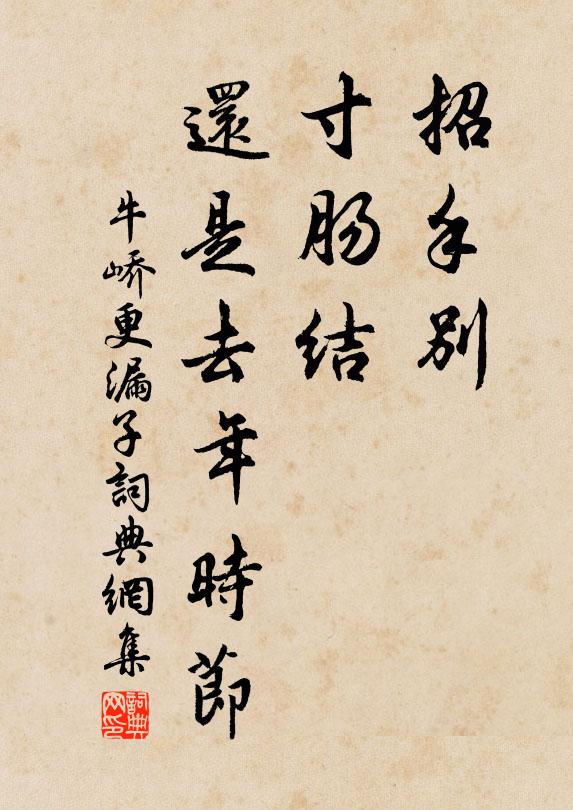 招手别
寸肠结
還是去年時節
牛嶠更漏子詞典網集
詞典网印